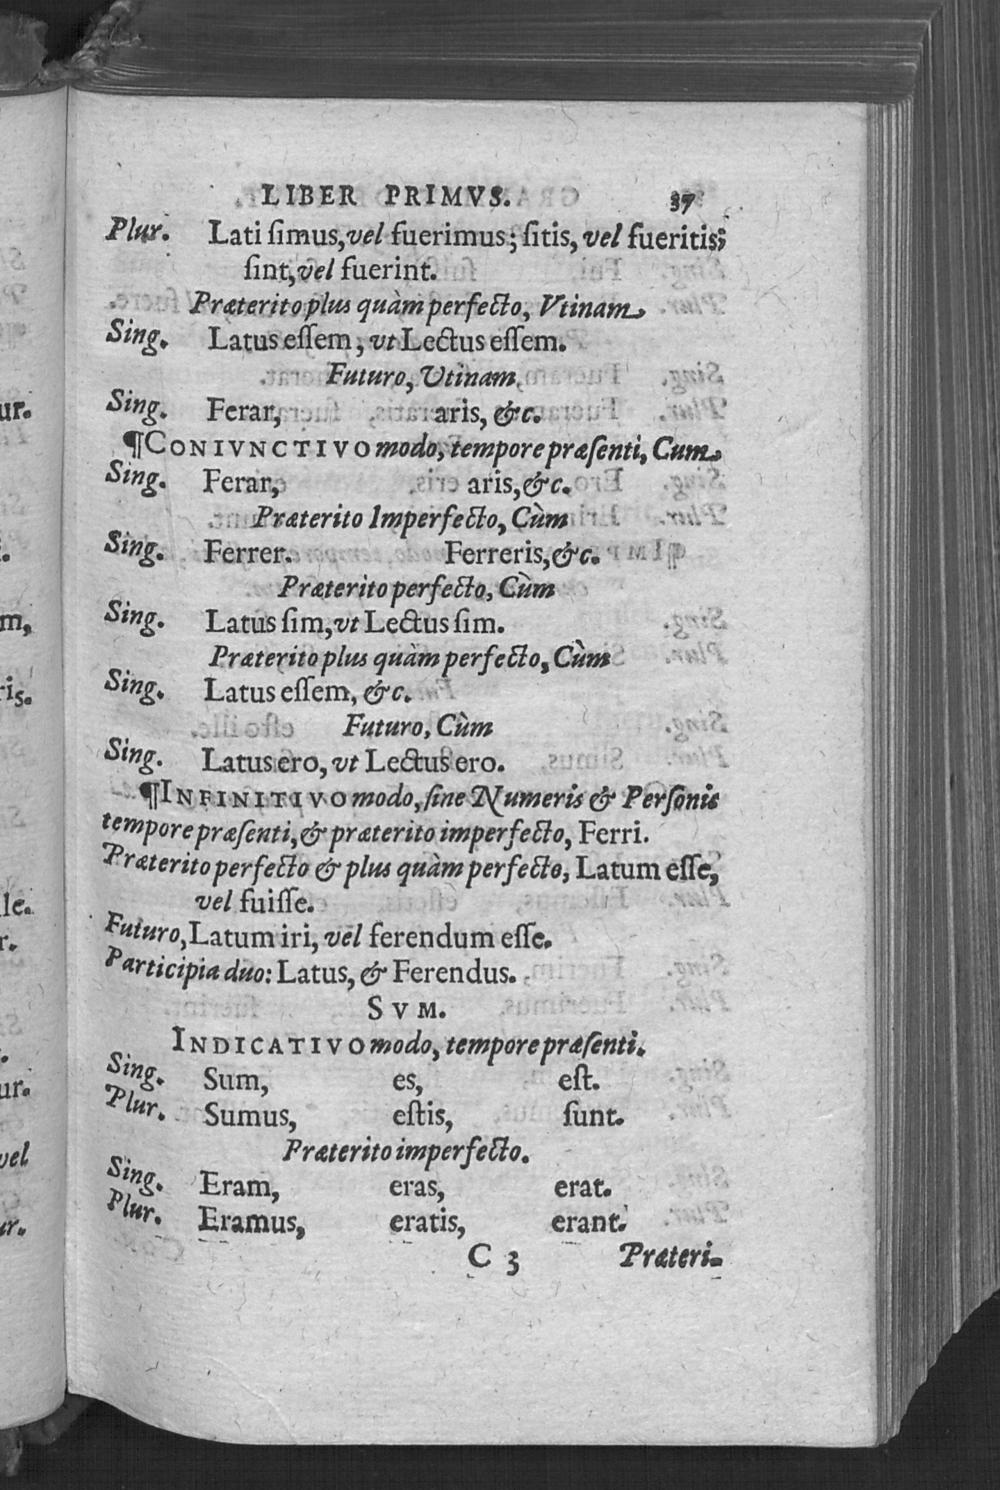 LIBER PRIMVS. 37
Plur. Lati ſimus, vel fuerimus; ſitis, vel fueritis;
ſint, vel fuerint.
Præterito plus quàm perfecto, Vtinam
Sing. Latus eſſem, vt Lectus eſſem.
Futuro, Utinam
Sing. Ferar, aris, &c.
¶CONIVNCTIVO modo, tempore præſenti, Cum
Sing. Ferar, aris, &c.
Præterito Imperfecto, Cùm
Sing. Ferrer. Ferreris, &c.
Præterito perfecto, Cùm
Sing. Latus ſim, vt Lectus ſim.
Præterito plus quàm perfecto, Cùm
Sing. Latus eſſem, &c.
Futuro, Cùm
Sing. Latus ero, vt Lectus ero.
¶INFINITIVO modo, ſine Numeris & Perſonis
tempore præſenti, & præterito imperfecto, Ferri.
Præterito perfecto & plus quàm perfecto, Latum eſſe,
vel fuiſſe.
Futuro, Latum iri, vel ferendum eſſe.
Participia duo: Latus, & Ferendus.
SVM.
INDICATIVO modo, tempore præſenti.
Sing. Sum, es, eſt.
Plur. Sumus, eſtis, ſunt.
Præterito imperfecto.
Sing. Eram, eras, erat.
Plur. Eramus, eratis, erant.
C 3 Præteri-